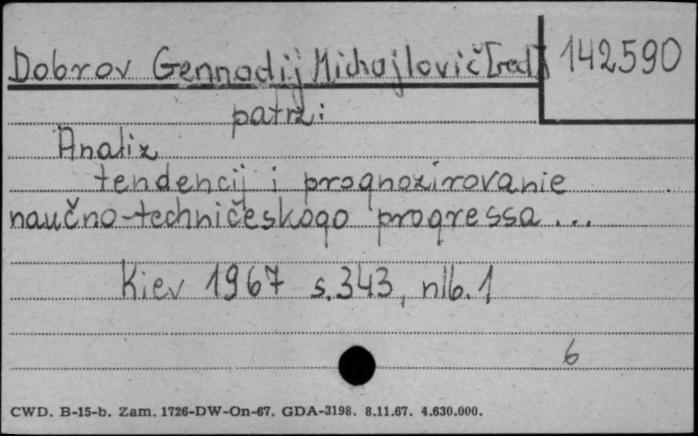 Dobrov Gennadij Michajlovič [red] 142590
patrz:
Analiz
tendencij i prognozirovanie
naučno-techničeskogo progressa ...
Kiev 1967 s. 343, nlb. 1
6
CWD. B-15-b. Zam. 1726-DW-On-67. GDA-3198. 8.11.67. 4.630.000.